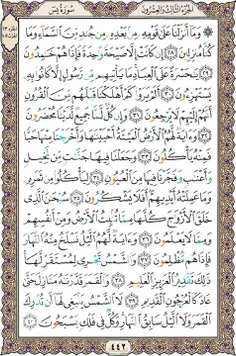 الجزء الثالث والعشرون سورة يس
وَمَا أَنزَلْنَا عَلَىٰ قَوْمِهِ مِنْ بَعْدِهِ مِن جُندٍ مِّنَ السَّمَاءِ وَمَا
كُنَّا مُنزِلِينَ ٢٨ إِن كَانَتْ إِلَّا صَيْحَةً وَاحِدَةً فَإِذَا هُمْ خَامِدُونَ
٢٩ يَا حَسْرَةً عَلَى الْعِبَادِ مَا يَأْتِيهِم مِّن رَّسُولٍ إِلَّا كَانُوا بِهِ
يَسْتَهْزِئُونَ ٣٠ أَلَمْ يَرَوْا كَمْ أَهْلَكْنَا قَبْلَهُم مِّنَ الْقُرُونِ
أَنَّهُمْ إِلَيْهِمْ لَا يَرْجِعُونَ ٣١ وَإِن كُلٌّ لَّمَّا جَمِيعٌ لَّدَيْنَا مُحْضَرُونَ
٣٢ وَآيَةٌ لَّهُمُ الْأَرْضُ الْمَيْتَةُ أَحْيَيْنَاهَا وَأَخْرَجْنَا مِنْهَا حَبًّا
فَمِنْهُ يَأْكُلُونَ ٣٣ وَجَعَلْنَا فِيهَا جَنَّاتٍ مِّن نَّخِيلٍ
وَأَعْنَابٍ وَفَجَّرْنَا فِيهَا مِنَ الْعُيُونِ ٣٤ لِيَأْكُلُوا مِن ثَمَرِهِ
وَمَا عَمِلَتْهُ أَيْدِيهِمْ أَفَلَا يَشْكُرُونَ ٣٥ سُبْحَانَ الَّذِي
خَلَقَ الْأَزْوَاجَ كُلَّهَا مِمَّا تُنبِتُ الْأَرْضُ وَمِنْ أَنفُسِهِمْ
وَمِمَّا لَا يَعْلَمُونَ ٣٦ وَآيَةٌ لَّهُمُ اللَّيْلُ نَسْلَخُ مِنْهُ النَّهَارَ
فَإِذَا هُم مُّظْلِمُونَ ٣٧ وَالشَّمْسُ تَجْرِي لِمُسْتَقَرٍّ لَّهَا
ذَٰلِكَ تَقْدِيرُ الْعَزِيزِ الْعَلِيمِ ٣٨ وَالْقَمَرَ قَدَّرْنَاهُ مَنَازِلَ حَتَّىٰ
عَادَ كَالْعُرْجُونِ الْقَدِيمِ ٣٩ لَا الشَّمْسُ يَنبَغِي لَهَا أَن تُدْرِكَ
الْقَمَرَ وَلَا اللَّيْلُ سَابِقُ النَّهَارِ وَكُلٌّ فِي فَلَكٍ يَسْبَحُونَ ٤٠
٤٤٢